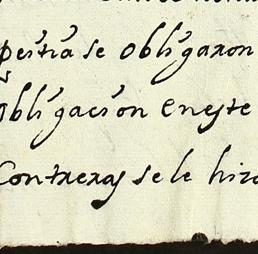 se obligaron
obligacion eneste
Contreras se le hizo